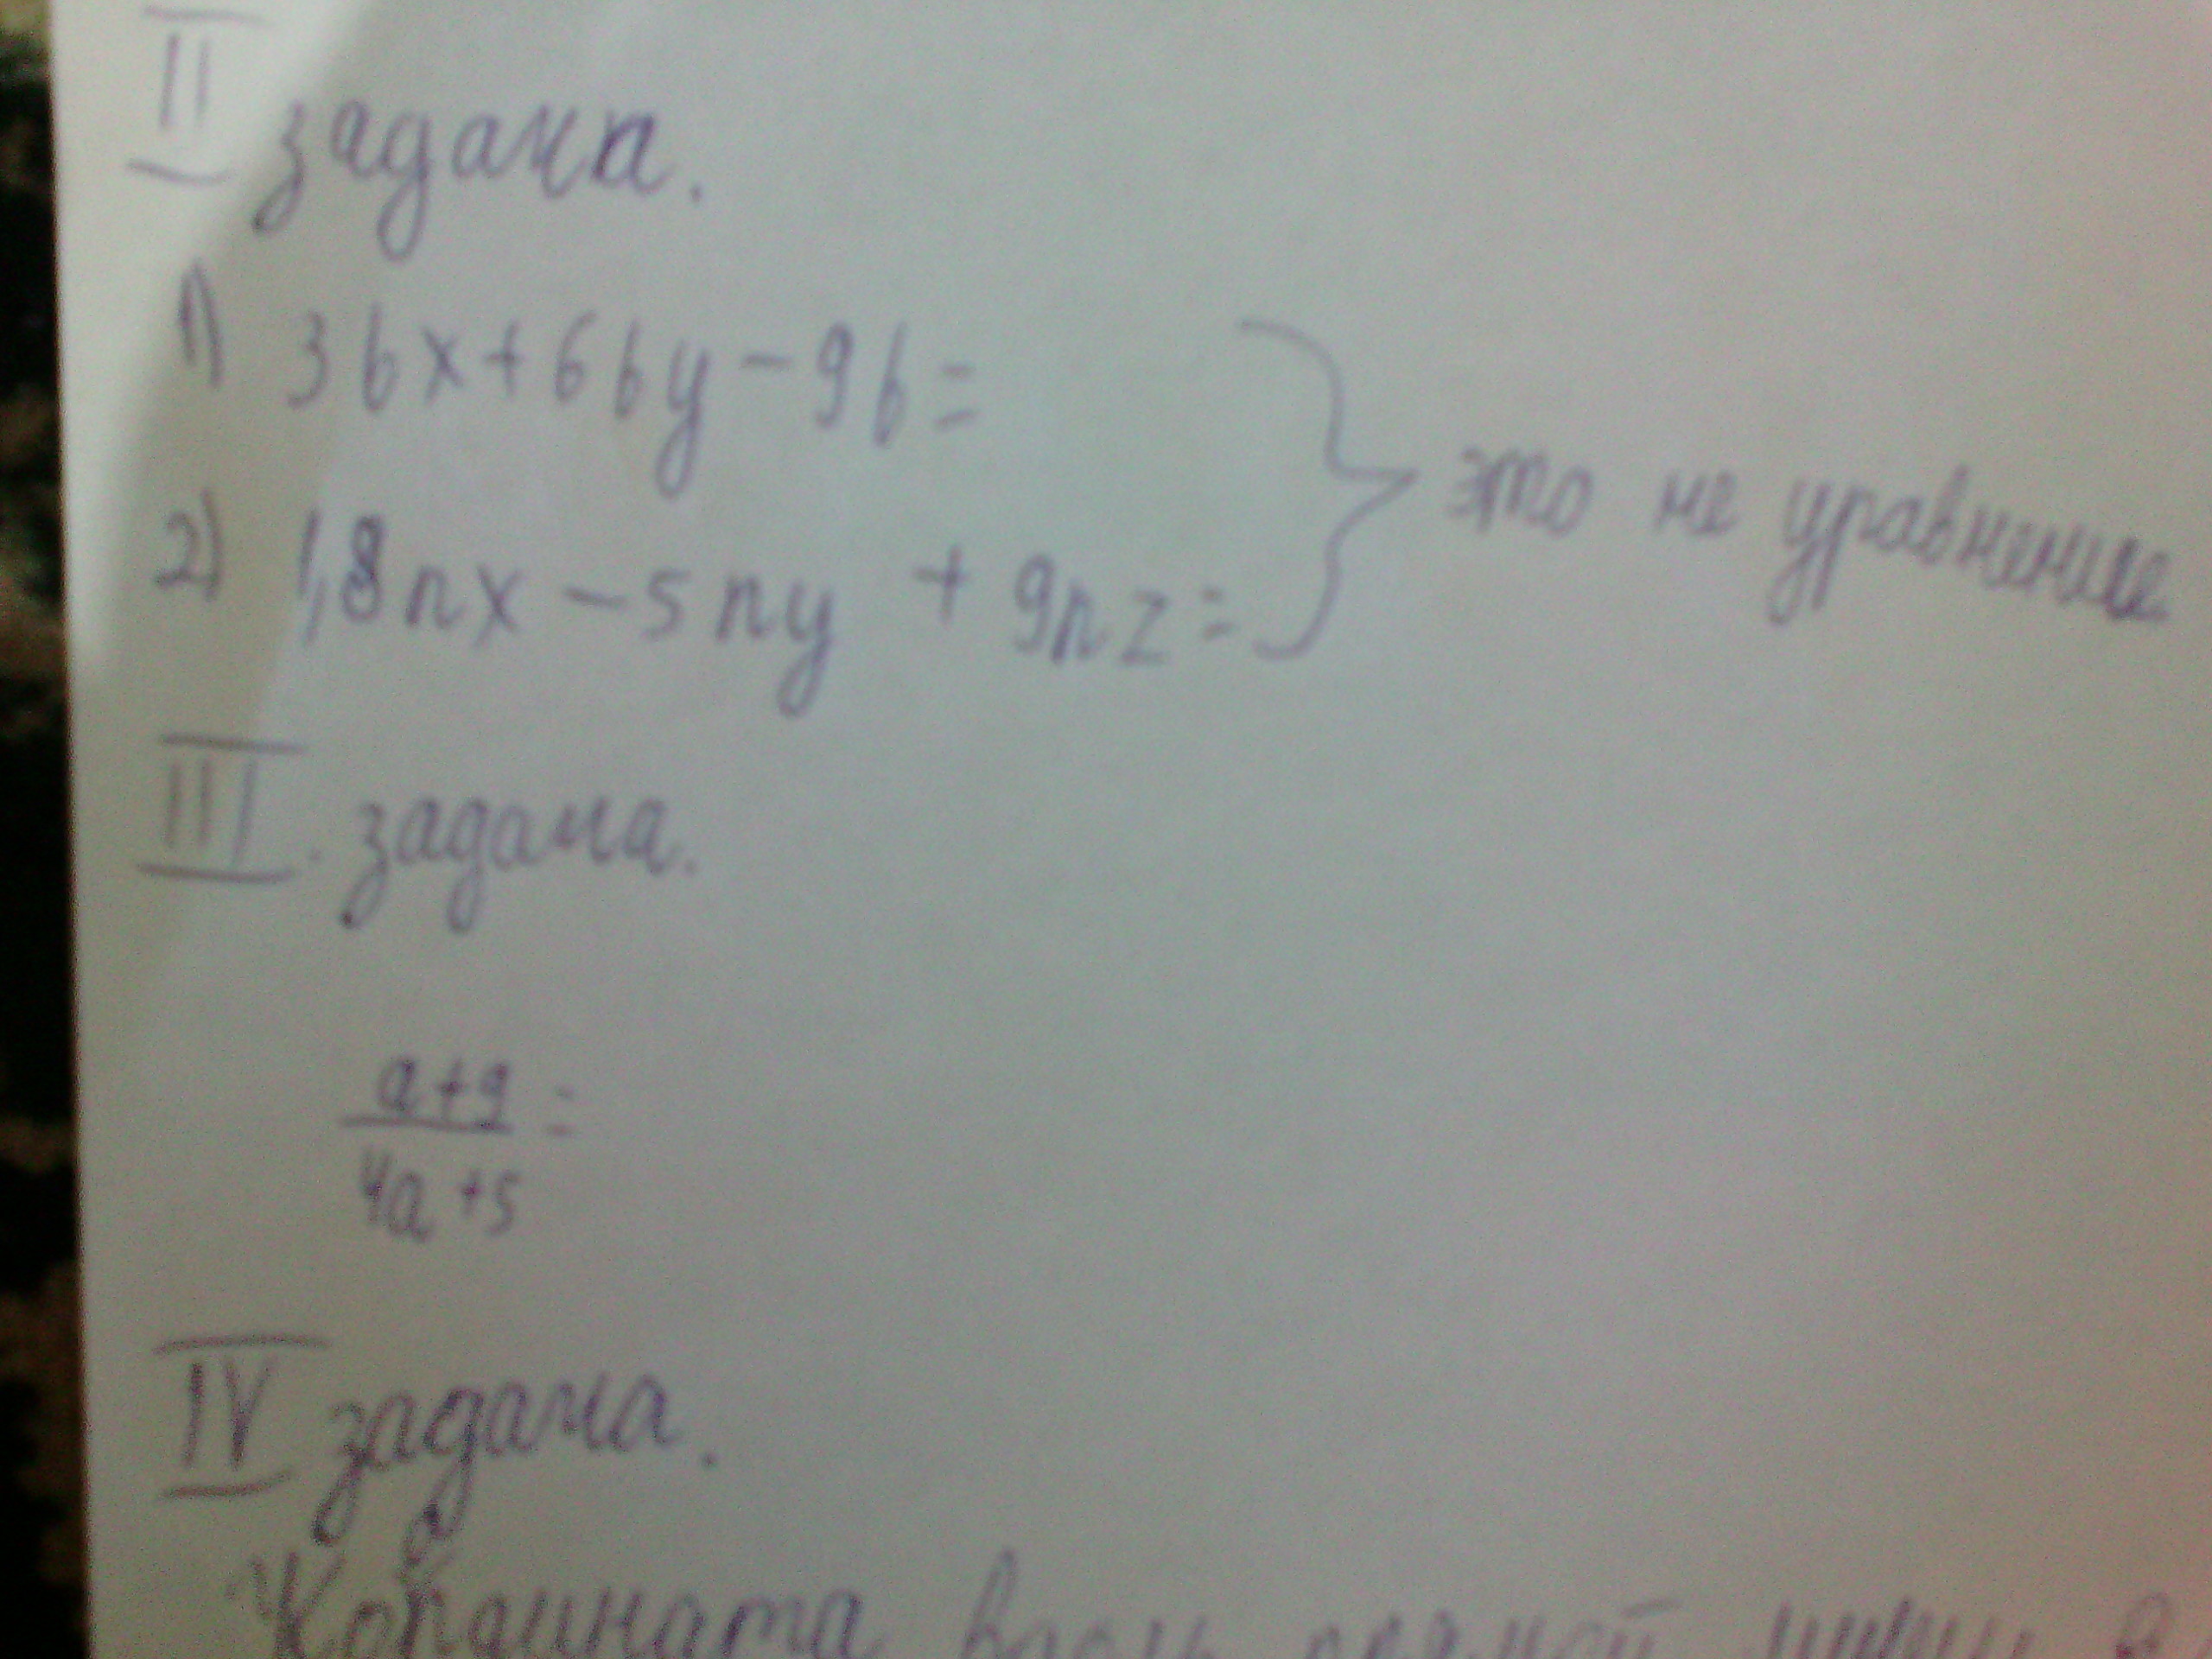 II задача.
1) 3bx+6by-9b=
2) 1,8nx-5ny+9nz=
это не уравнение
III. задача.
a+9
4a+5
=
IV задача.
Координата